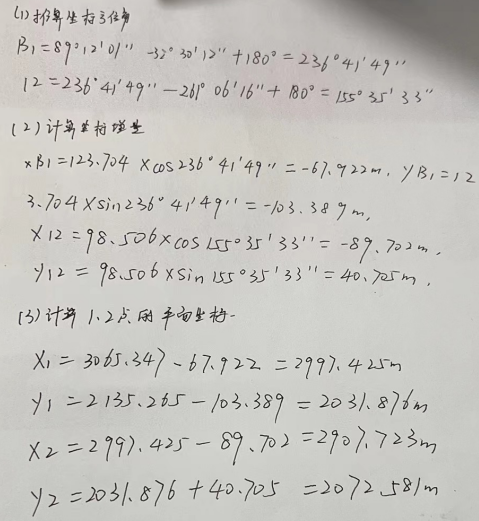 (1)推算坐标方位角
B1=89°12'01" -32°30'12"+180°=236°41'49"
12=236°41'49"-261°06'16"+180°=155°35'33"
(2)计算坐标增量
xB1=123.704×cos236°41'49"=-67.922m, yB1=12
3.704×sin236°41'49"=-103.389m,
X12=98.506×cos155°35'33"=-89.702m,
y12=98.506×sin155°35'33"=40.705m,
(3)计算1.2点的平面坐标.
X1=3065.347-67.922=2997.425m
y1=2135.265-103.389=2031.876m
X2=2997.425-89.702=2907.723m
y2=2031.876+40.705=2072.581m